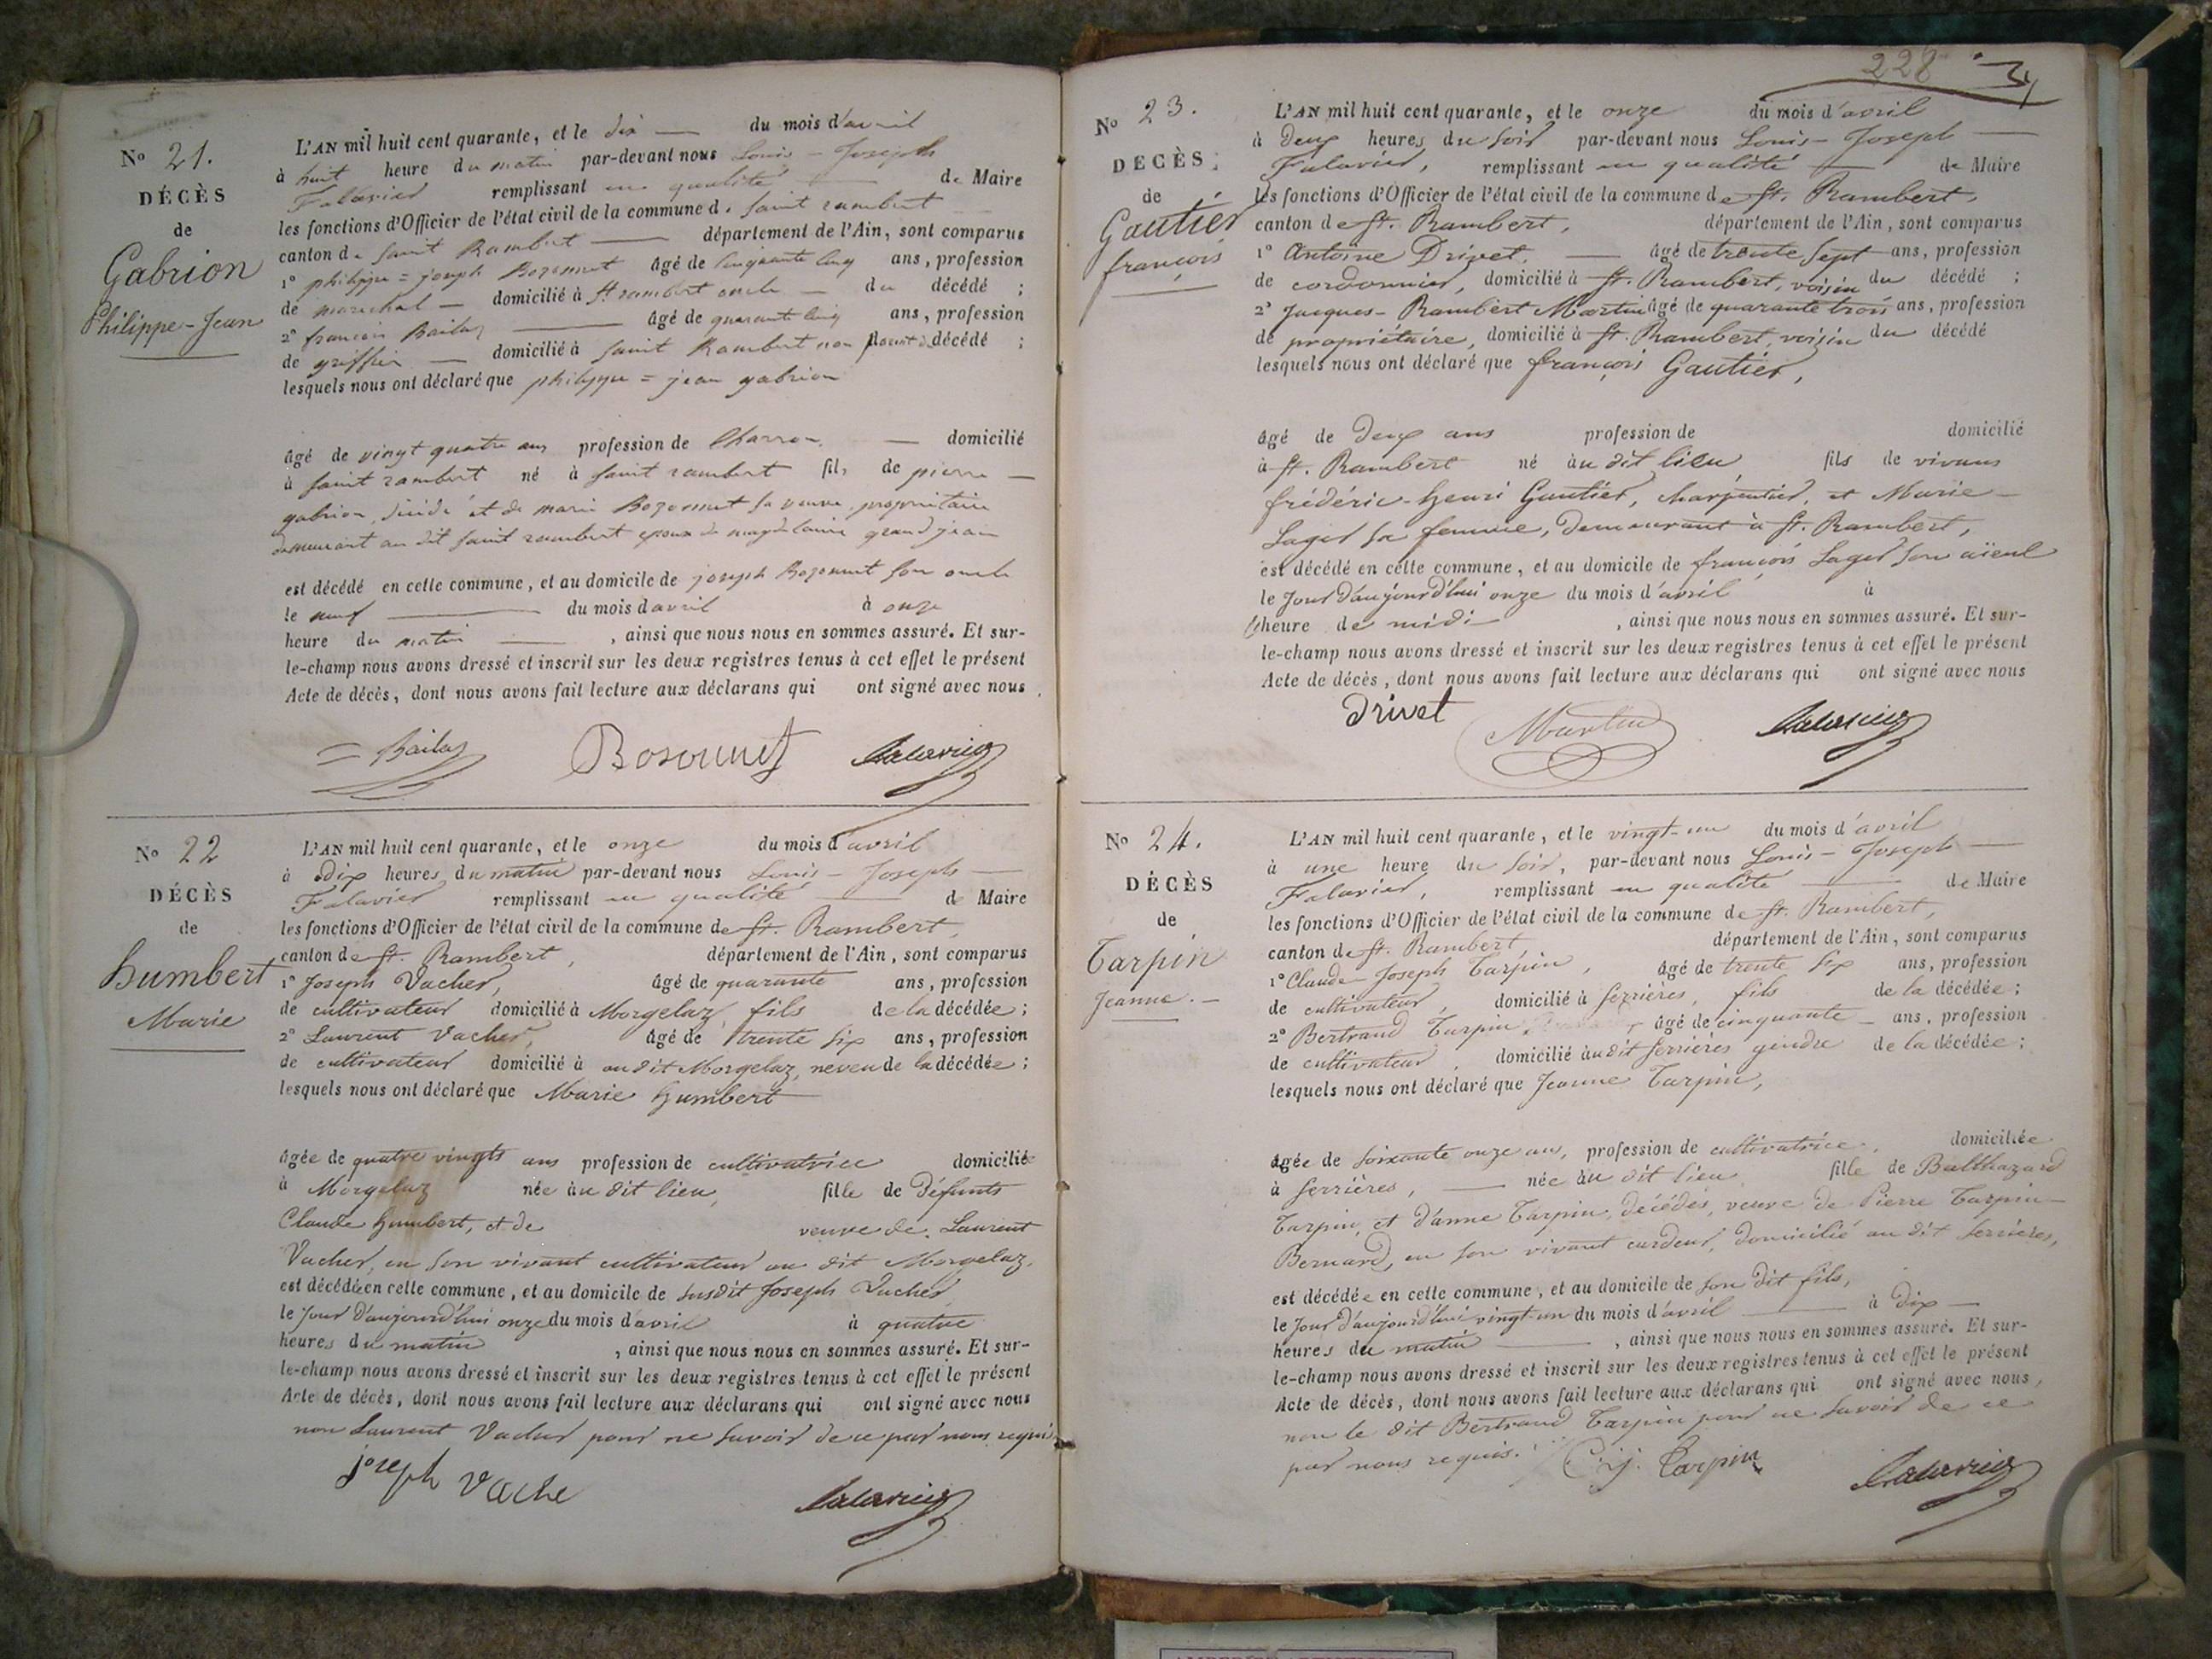 No 21.
DÉCÈS
de
Gabrion
Philippe-Jean
L'AN mil huit cent quarante, et le dix du mois d'avril
à huit heure du matin par-devant nous Louis-Joseph
Falavier remplissant en qualité de Maire
les fonctions d'Officier de l'état civil de la commune de saint rambert
canton de saint Rambert département de l'Ain, sont comparus
1° philippe=joseph Bozonnet âgé de cinquante cinq ans, profession
de marechal domicilié à St rambert oncle du décédé ;
2° francois Bailat âgé de quarante cinq ans, profession
de greffier domicilié à saint Rambert non parent du décédé ;
lesquels nous ont déclaré que philippe=jean gabrion
âgé de vingt quatre ans profession de Charron domicilié
à saint rambert né à saint rambert fils de pierre
gabrion, décédé et de marie Bozonnet sa veuve, propriétaire
demeurant au dit saint rambert epoux de magdelaine grandjean
est décédé en cette commune, et au domicile de joseph Bozonnet son oncle
le neuf du mois d'avril à onze
heure du matin , ainsi que nous nous en sommes assuré. Et sur-
le-champ nous avons dressé et inscrit sur les deux registres tenus à cet effet le présent
Acte de décès, dont nous avons fait lecture aux déclarans qui ont signé avec nous.
Bailat Bosonnet Falavier
No 22
DÉCÈS
de
humbert
Marie
L'AN mil huit cent quarante, et le onze du mois d'avril
à dix heures du matin par-devant nous Louis-Joseph
Falavier remplissant en qualité de Maire
les fonctions d'Officier de l'état civil de la commune de St. Rambert,
canton de St. Rambert, département de l'Ain, sont comparus
1° Joseph Vacher, âgé de quarante ans, profession
de cultivateur domicilié à Morgelaz, fils de la décédée ;
2° Laurent Vacher, âgé de trente six ans, profession
de cultivateur domicilié à au dit Morgelaz, neveu de la décédée ;
lesquels nous ont déclaré que Marie humbert
âgée de quatre vingts ans profession de cultivatrice domiciliée
à Morgelaz née au dit lieu, fille de Défunts
Claude humbert, et de veuve de Laurent
Vacher, en son vivant cultivateur au dit Morgelaz,
est décédée en cette commune, et au domicile de susdit Joseph Vacher
le jour d'aujourd'hui onze du mois d'avril à quatre
heures du matin , ainsi que nous nous en sommes assuré. Et sur-
le-champ nous avons dressé et inscrit sur les deux registres tenus à cet effet le présent
Acte de décès, dont nous avons fait lecture aux déclarans qui ont signé avec nous
non Laurent Vacher pour ne savoir de ce par nous requis
joseph vache Falavier
228
No 23.
DÉCÈS
de
Gautier
françois
L'AN mil huit cent quarante, et le onze du mois d'avril
à deux heures du soir par-devant nous Louis-Joseph
Falavier, remplissant en qualité de Maire
les fonctions d'Officier de l'état civil de la commune de St. Rambert,
canton de St. Rambert, département de l'Ain, sont comparus
1° Antoine Drivet, âgé de trente sept ans, profession
de cordonnier, domicilié à St. Rambert, voisin du décédé ;
2° Jacques-Rambert Martin âgé de quarante trois ans, profession
de propriétaire, domicilié à St. Rambert, voisin du décédé
lesquels nous ont déclaré que françois Gautier,
âgé de deux ans profession de domicilié
à St. Rambert né au dit lieu fils de vivans
frédéric-henri Gautier, charpentier, et Marie
Lager sa femme, demeurant à St. Rambert,
est décédé en cette commune, et au domicile de françois Lager son aïeul
le jour d'aujourd'hui onze du mois d'avril à
heure de midi , ainsi que nous nous en sommes assuré. Et sur-
le-champ nous avons dressé et inscrit sur les deux registres tenus à cet effet le présent
Acte de décès, dont nous avons fait lecture aux déclarans qui ont signé avec nous
Drivet Martin Falavier
No 24.
DÉCÈS
de
Tarpin
Jeanne.
L'AN mil huit cent quarante, et le vingt-un du mois d'avril
à une heure du soir, par-devant nous Louis-Joseph
Falavier, remplissant en qualité de Maire
les fonctions d'Officier de l'état civil de la commune de St. Rambert,
canton de St. Rambert, département de l'Ain, sont comparus
1° Claude-Joseph Tarpin, âgé de trente six ans, profession
de cultivateur, domicilié à serrières, fils de la décédée ;
2° Bertrand Tarpin âgé de cinquante ans, profession
de cultivateur, domicilié au dit serrières gendre de la décédée ;
lesquels nous ont déclaré que Jeanne Tarpin,
âgée de soixante onze ans, profession de cultivatrice, domiciliée
à serrières, née au dit lieu fille de Balthazard
Tarpin, et d'anne Tarpin, décédés, veuve de Pierre Tarpin-
Bernard, en son vivant cardeur, domicilié au dit serrières,
est décédée en cette commune, et au domicile de son dit fils,
le jour d'aujourd'hui vingt-un du mois d'avril à dix
heures du matin , ainsi que nous nous en sommes assuré. Et sur-
le-champ nous avons dressé et inscrit sur les deux registres tenus à cet effet le présent
Acte de décès, dont nous avons fait lecture aux déclarans qui ont signé avec nous,
non le dit Bertrand Tarpin pour ne savoir de ce
par nous requis. C. j. Tarpin Falavier